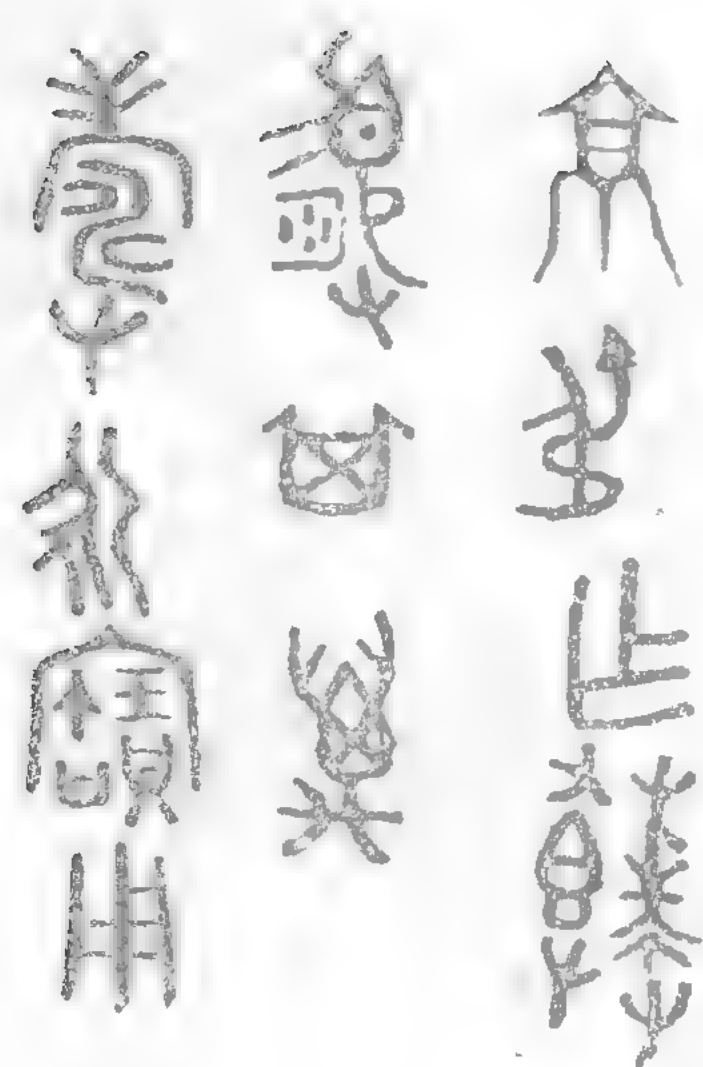 京弔乍饙
盨其萬
壽永寶用